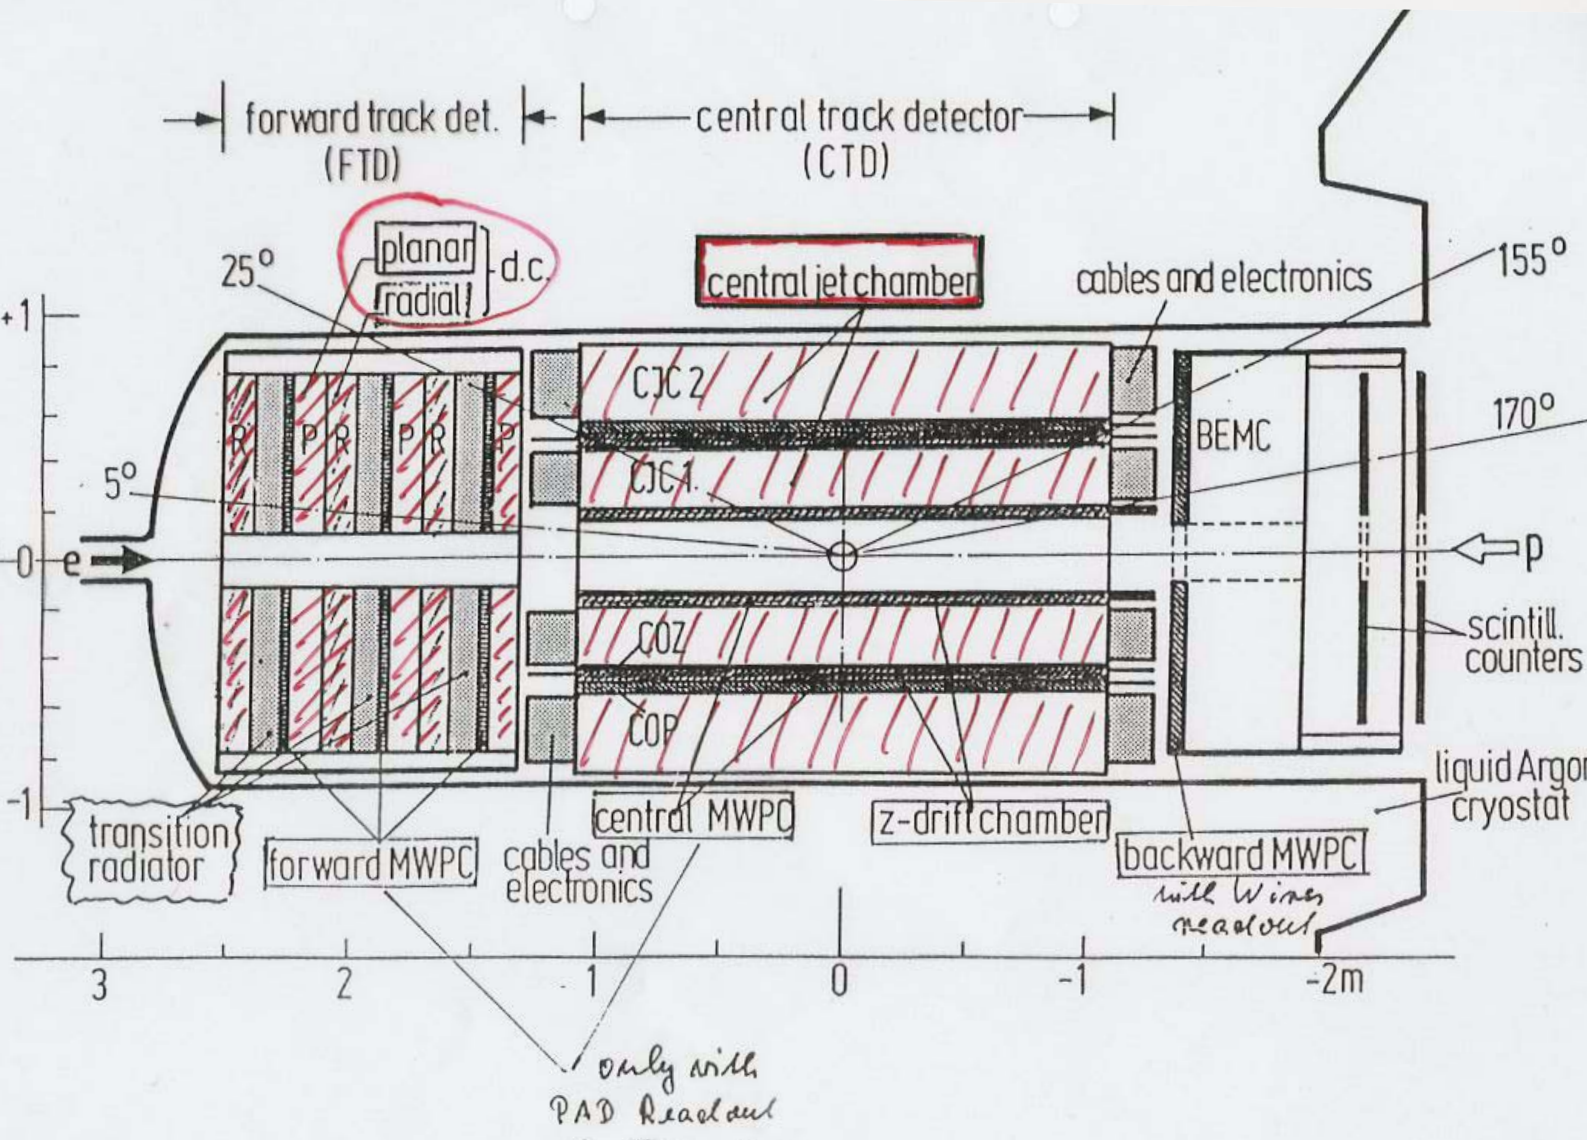 forward track det.
(FTD)
central track detector
(CTD)
planar
radial
d.c.
central jet chamber
cables and electronics
25°
155°
+1
CJC 2
170°
R P R P R P
BEMC
5°
CJC 1
0
e
p
COZ
scintill.
counters
COP
-1
liquid Argon
cryostat
transition
radiator
forward MWPC
cables and
electronics
central MWPC
z-drift chamber
backward MWPC
with Wires
readout
3 2 1 0 -1 -2m
only with
PAD Readout